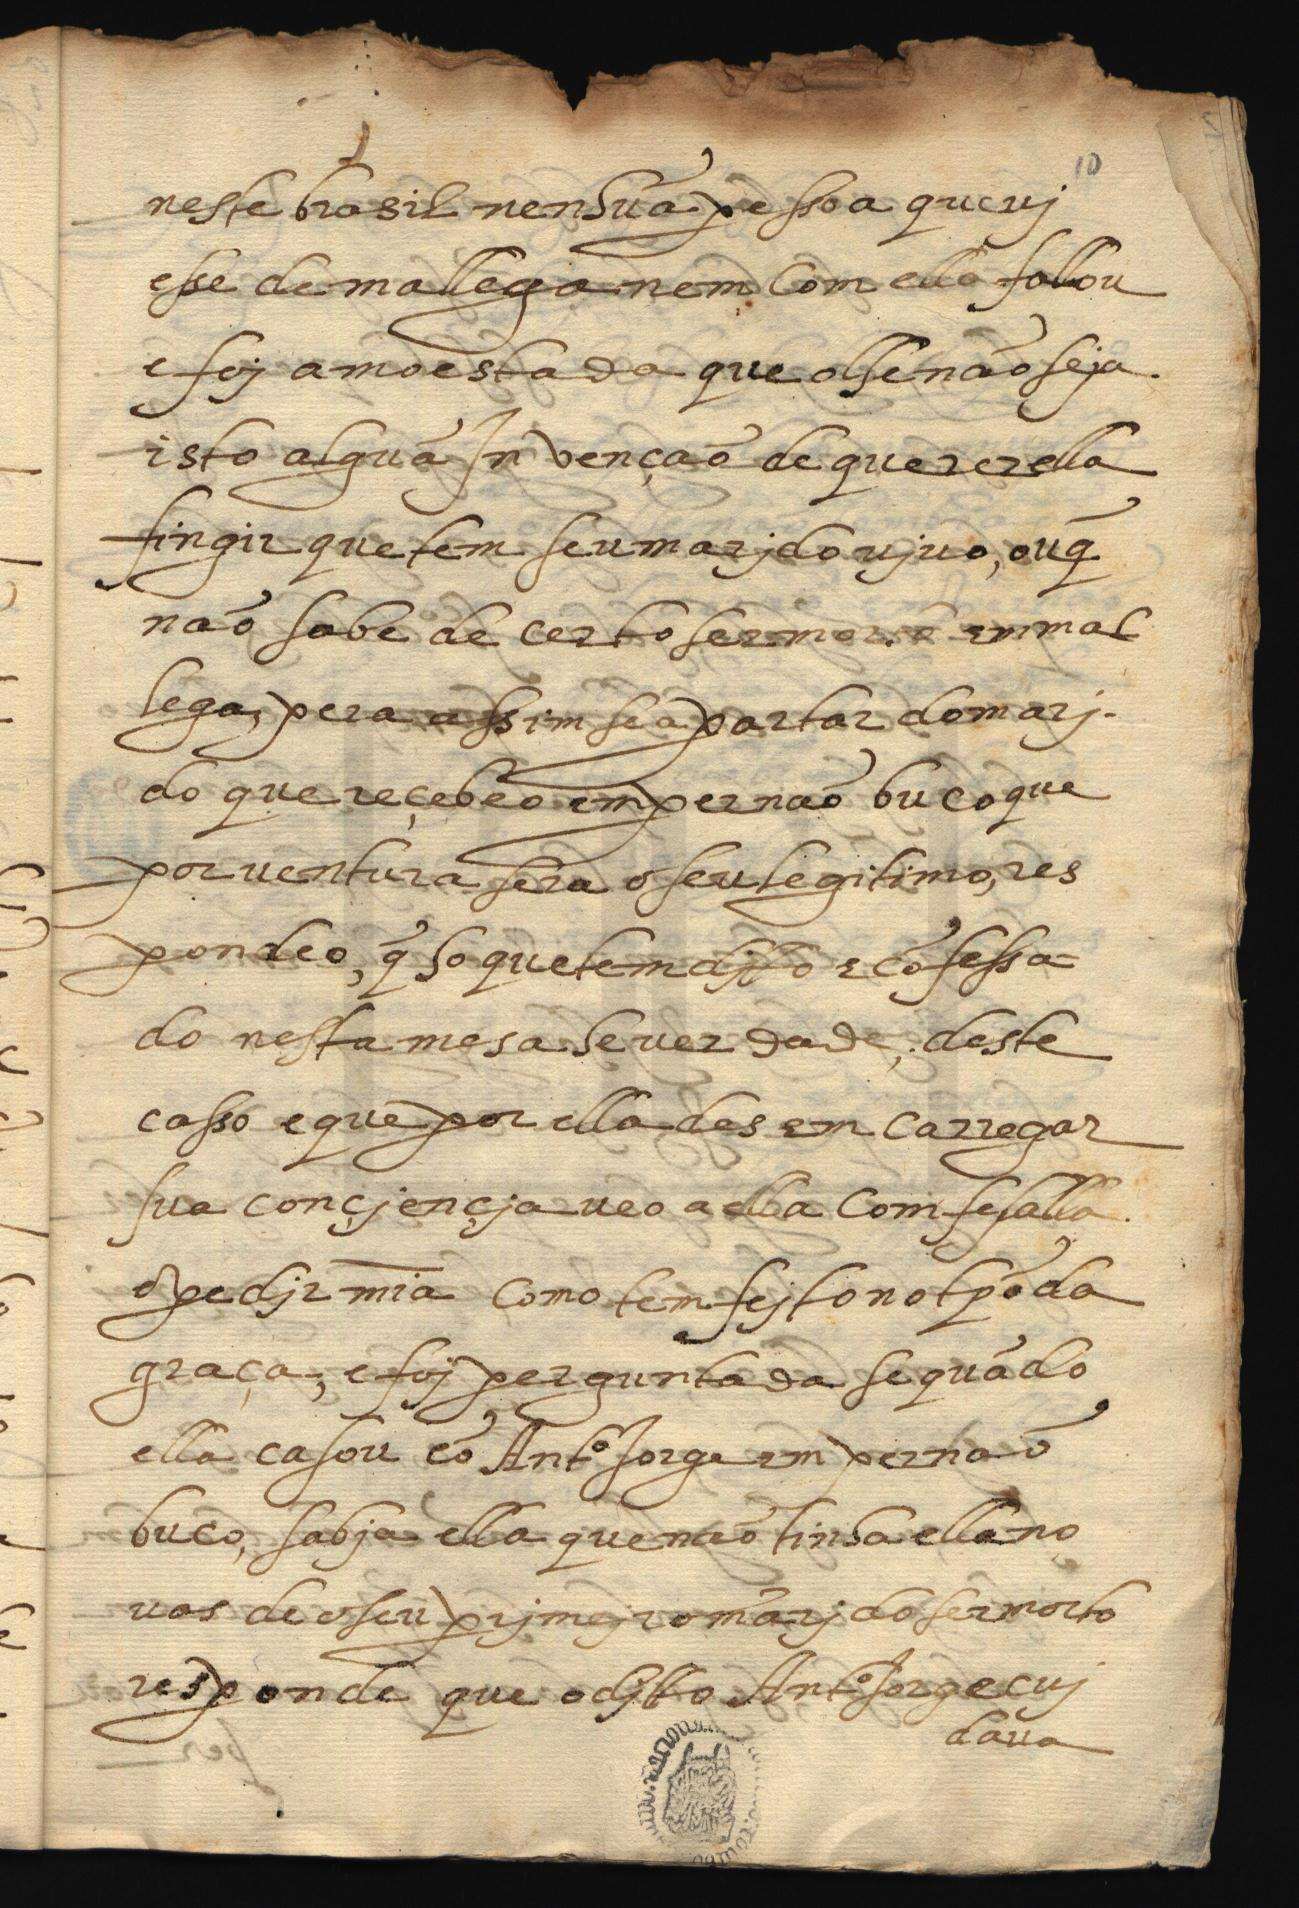 10
neste brasil nenhuã pessoa que uj
esse de mallega nem com ella fallou
e foj amoestada que olhe não seja
isto alguã Jnvenção de querer ella
fingir que tem seu marjdo ujuo, ou q̃
não sabe de certo ser morto em mal
lega, pera assim se apartar do marj-
do que reçebeo em pernão buco que
por uentura sera o seu legitimo, res
pondeo, q̃ ho que tem djtto e cõfessa-
do nesta mesa he uerdade, deste
casso e que por ella desemcarregar
sua conçjençja ueo a ella comfesalla
e pedjr mia como tem fejto no tpõ da
graça, e foj perguntada se quãdo
ella casou cõ Antº Jorge em pernão
buco, sabja ella que não tinha ella no
uas de o seu prjmejro marjdo ser morto
responde que o djtto Antº Jorge cuj
daua